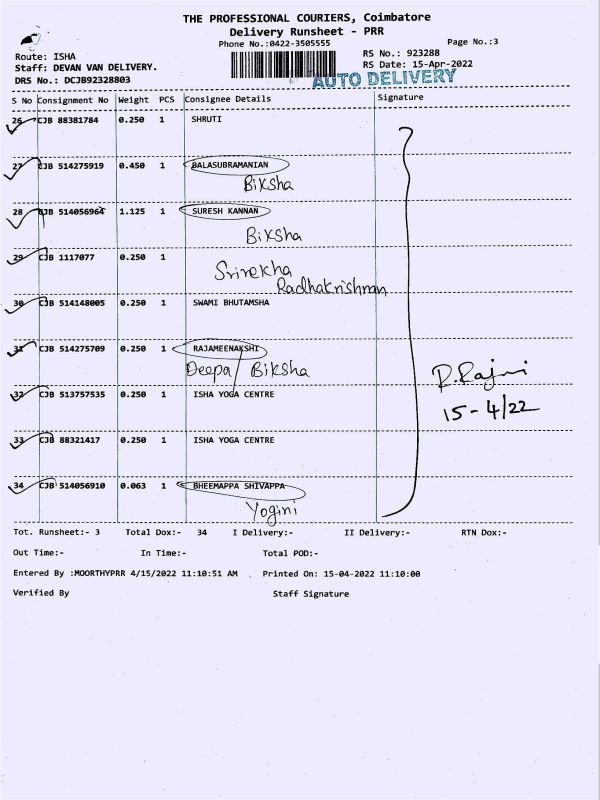 THE PROFESSIONAL COURIERS, Coimbatore
Delivery Runsheet - PRR
Phone No.:0422-3505555
Page No.:3
Route: ISHA
RS No.: 923288
Staff: DEVAN VAN DELIVERY.
RS Date: 15-Apr-2022
DRS No.: DCJB92328803
AUTO DELIVERY
S No Consignment No Weight PCS Consignee Details Signature
26 CJB 88381784 0.250 1 SHRUTI
27 CJB 514275919 0.450 1 BALASUBRAMANIAN
Biksha
28 CJB 514056964 1.125 1 SURESH KANNAN
Biksha
29 CJB 1117077 0.250 1
Srirekha
Radhakrishnan
30 CJB 514148005 0.250 1 SWAMI BHUTAMSHA
31 CJB 514275709 0.250 1 RAJAMEENAKSHI
Deepa / Biksha
R.Rajni
32 CJB 513757535 0.250 1 ISHA YOGA CENTRE
15-4/22
33 CJB 88321417 0.250 1 ISHA YOGA CENTRE
34 CJB 514056910 0.063 1 BHEEMAPPA SHIVAPPA
Yogini
Tot. Runsheet:- 3 Total Dox:- 34 I Delivery:- II Delivery:- RTN Dox:-
Out Time:- In Time:- Total POD:-
Entered By :MOORTHYPRR 4/15/2022 11:10:51 AM Printed On: 15-04-2022 11:10:00
Verified By Staff Signature